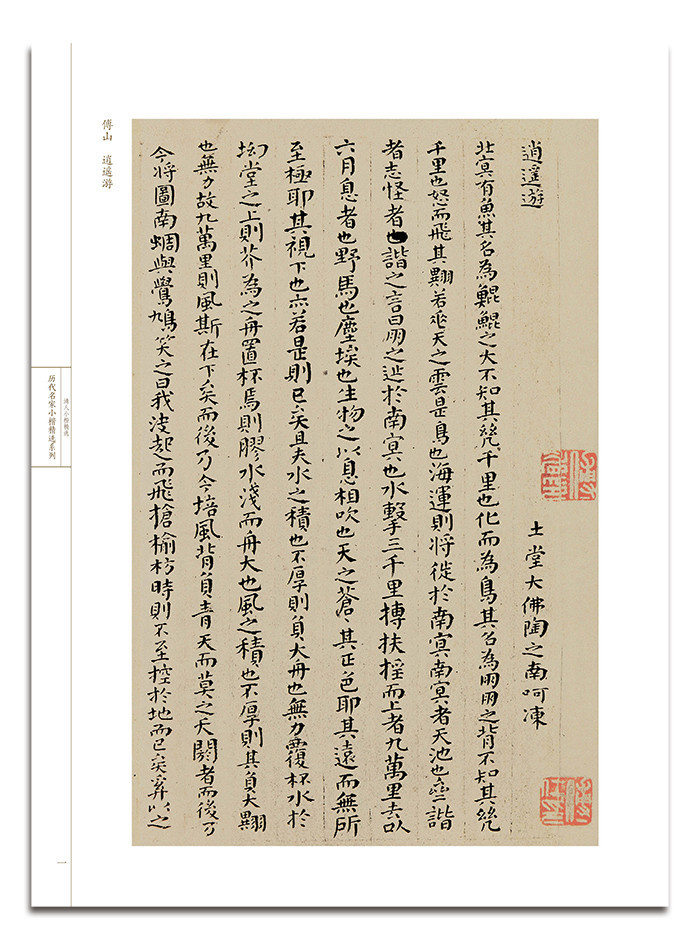 逍遥遊
土堂大佛陶之南呵凍
北冥有魚其名為鯤鯤之大不知其㡬千里也化而為鳥其名為朋朋之背不知其㡬
千里也怒而飛其翾若垂天之雲是鳥也海運則將徙於南冥南冥者天池也齊諧
者志怪者也諧之言曰朋之徙於南冥也水擊三千里摶扶揺而上者九萬里去以
六月息者也野馬也塵埃也生物之以息相吹也天之蒼〻其正色耶其遠而無所
至極耶其視下也亦若是則已矣且夫水之積也不厚則負大舟也無力覆杯水於
坳堂之上則芥為之舟置杯焉則膠水淺而舟大也風之積也不厚則其負大翾
也無力故九萬里則風斯在下矣而後乃今培風背負青天而莫之夭閼者而後乃
今將圖南蜩與鷽鳩笑之曰我决起而飛搶榆枋時則不至控於地而已矣奚以之
傅山 逍遥游
清人小楷精选
历代名家小楷精选系列
一